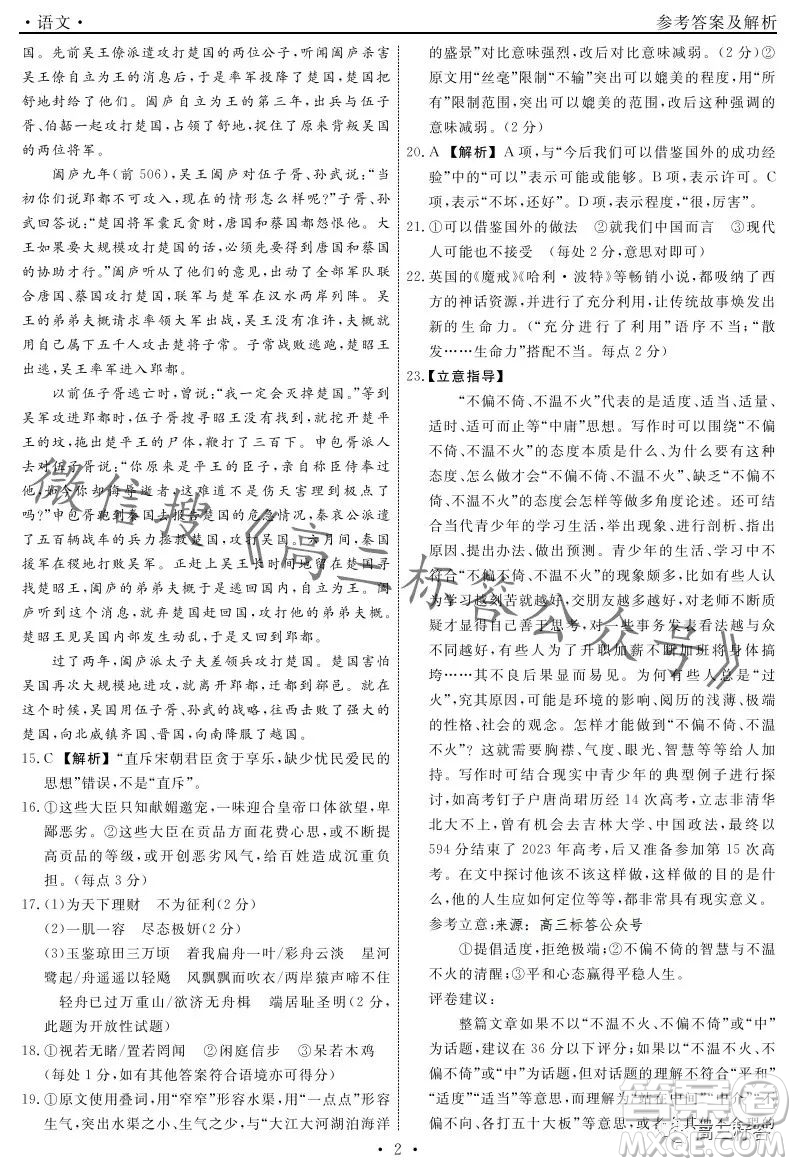 ·语文·
参考答案及解析
国。先前吴王僚派遣攻打楚国的两位公子，听闻阖庐杀害
吴王僚自立为王的消息后，于是率军投降楚国，楚国把
舒地封给了他们。阖庐自立为王的第三年，出兵与伍子
胥、伯嚭一起攻打楚国，占领了舒地，捉获了原来背叛吴国
的两位将军。
阖庐九年（前 506），吴王阖庐对伍子胥、孙武说：“当
初你们说郢都不可攻入，现在的情形怎么样呢？”子胥、孙
武回答说：“楚国将军囊瓦贪财，唐国和蔡国都怨恨他。大
王如果要大规模攻打楚国的话，必须先要得到唐国和蔡国
的协助才行。”阖庐听从了他们的意见，出动了全部军队联
合唐国、蔡国攻打楚国，联军与楚军在汉水两岸列阵。吴
王的弟弟夫概请求率领大军出战，吴王没有准许，夫概就
用属下五千人攻击楚将子常。子常战败逃跑，楚昭王出
逃。吴王率军进入郢都。
以前伍子胥逃亡时，曾说：“我一定会灭掉楚国。”等到
吴军攻进郢都时，伍子胥搜寻昭王没有找到，就挖开楚平
王的坟，拖出楚平王的尸体，鞭打了三百下。申包胥派人
去对伍子胥说：“你原来是平王的臣子，亲自称臣侍奉过
他，如今你却侮辱逝者，这难道不是伤天害理到极点了
吗？”申包胥跑到秦国去报告楚国的危急情况，秦哀公派遣
了五百辆战车的兵力拯救楚国，攻打吴国。六月间，秦国
援军险些打败吴军。正赶上吴王长时间留在楚国寻找楚
昭王，阖庐的弟弟夫概于是逃回国内，自立为王。阖庐
听到这个消息，就弃楚国赶回国，攻打他的弟弟夫概。
楚昭王见吴国内部发生动乱，于是又回到郢都。
过了两年，阖庐派太子夫差领兵攻打楚国。楚国害怕
吴国再次大规模地进攻，就离开郢城，迁都到鄀邑。就在
这个时候，吴国以伍子胥、孙武的战略，向西击败了强大的
楚国，向北威镇齐国、晋国，向南降服了越国。
15. C 【解析】“直斥宋朝君臣贪于享乐，缺少忧民爱民的
思想”错误，不是“直斥”。
16. ①这些大臣只知献媚邀宠，一味迎合皇帝口体欲望，卑
鄙恶劣。②这些大臣在贡品方面花费心思，以不断提
高贡品的等级，或开创恶劣风气，给百姓造成沉重负
担。（每点 3 分）
17. (1)为天下理财　不为征利(2 分)
(2)一肌一容　尽态极妍(2 分)
(3)玉鉴琼田三万顷　着我扁舟一叶/彩舟云淡　星河
鹭起/舟遥遥以轻飏　风飘飘而吹衣/两岸猿声啼不住
轻舟已过万重山/欲济无舟楫　端居耻圣明(2 分，
此题为开放性试题)
18. ①视若无睹/置若罔闻　②闲庭信步　③呆若木鸡
（每处 1 分，如有其他答案符合语境亦可得分）
19. ①原文使用叠词，用“窄窄”形容水渠，用“一点点”形容
生气，突出水渠之小，生气之少，与“大江大河湖泊海洋
的盛景”对比意味强烈，改后对比意味减弱。（2 分）②
原文用“丝毫”限制“不输”，突出可以媲美的程度，用“所
有”限制范围，突出可以媲美的范围，改后这种强调的
意味减弱。（2 分）
20. A 【解析】A 项，与“今后我们可以借鉴国外的成功经
验”中的“可以”表示可能或能够。B 项，表示许可。C
项，表示“不坏，还好”。D 项，表示程度，“很，厉害”。
21. ①可以借鉴国外的做法　②就我们中国而言　③现代
人可能也不接受　（每处 2 分，意思对即可）
22. 英国的《魔戒》《哈利·波特》等畅销小说，都吸纳了西
方的神话资源，并进行了充分利用，让传统故事焕发出
新的生命力。（“充分进行了利用”语序不当；“散
发……生命力”搭配不当。每点 2 分）
23.【立意指导】
“不偏不倚、不温不火”代表的是适度、适当、适量、
适时、适可而止等“中庸”思想。写作时可以围绕“不偏
不倚、不温不火”的态度本质是什么、为什么要有这种
态度、怎么做才会“不偏不倚、不温不火”、缺乏“不偏不
倚、不温不火”的态度会怎样等做多角度论述。还可结
合当代青少年的学习生活，举出现象、进行分析、指出
原因、提出办法、做出预测。青少年的生活、学习中不
符合“不偏不倚、不温不火”的现象颇多，比如有些人认
为学习越刻苦就越好，交朋友越多越好，对老师不断质
疑才显得自己善于思考，对一些事务发表看法越与众
不同越好，有些人为了升职加薪不断加班将身体搞
垮……其不良后果显而易见。为何有些人总是“过
火”，究其原因，可能是环境的影响、阅历的浅薄、极端
的性格、社会的观念。怎样才能做到“不偏不倚、不温
不火”？这可能需要胸襟、气度、眼光、智慧等等给与支
持。写作时可以结合现实中青少年的典型例子进行论
述，比如高考钉子户唐尚珺历经 14 次高考，立志非清华
北大不上，曾有机会去吉林大学、中国政法，最终以
594 分结束了 2023 年高考，后又准备参加第 15 次高
考。在文中探讨他该不该这样做，这样做的意义，得
失，他的人生应如何定位等等，都非常具有现实意义。
参考立意：来源：高三标答公众号
①提倡适度，拒绝极端；②不偏不倚的智慧与不温
不火的清醒；③平和心态赢得平稳人生。
评卷建议：
整篇文章如果不以“不温不火、不偏不倚”或“中”
为话题，建议在 36 分以下评分；如果以“不温不火、不
偏不倚”为话题，但是对该话题的理解不符合“平和”
“适度”等意思，或者写成了“站在中间”“中介”“不
偏不向、各打五十大板”等意思，或者与其他不在
·2·
微信搜《高三标答公众号》
高三标答
MXQE.COM